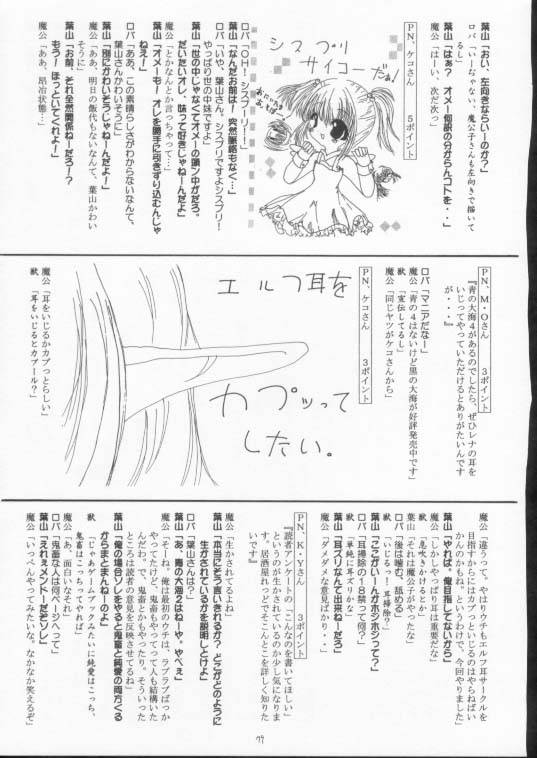 PN、ケコさん　5ポイント
シスプリ
サイコーだぁ!
葉山「おい、左向きならいーのか?」
ロバ「いーなじゃない、魔公子さんも左向きで描いて
る」
葉山「はぁ? オメー何訳の分からんコトを・・」
魔公「はーい、次だ次っ」
ロバ「OH! シスプーリ!!」
葉山「なんだお前は! 突然脈絡もなく…」
ロバ「いや、葉山さん。シスプリですよシスプリ!
やっぱり世の中妹ですよ」
葉山「世の中じゃなくてオメーの頭ン中がだろ。
だいたいオレ、妹って好きじゃねーんだよ」
魔公「とかなんとか言っちゃって…」
葉山「オメーも! オレを勝手に引きずり込むんじゃ
ねぇ!」
ロバ「ああ、この素晴らしさがわからないなんて、
葉山さんかわいそうに」
葉山「別にかわいそうじゃねーんだよ!」
魔公「ああ、明日の飯代もないなんて、葉山かわい
そうに」
葉山「お前、それ全然関係ねーだろー!?
もう! ほっといてくれよー!」
魔公「ああ、昂冶状態…」
PN、M・Oさん　3ポイント
『青の大海4があるのでしたら、ぜひレナの耳を
いじってやっていただけるとありがたいんです
が・・・』
ロバ「マニアだなー」
獣「宣伝してるし」
魔公「青の4はないけど黒の大海が好評発売中です」
魔公「同じヤツがケコさんから」
PN、ケコさん　3ポイント
エルフ耳を
カプッって
したい。
魔公「耳をいじるかカプっとらしい」
獣「耳をいじるとカプール?」
魔公「違うって、やはりウチもエルフ耳サークルを
目指すからにはカプっといじるのはやらねばい
かんのかも。というわけで、今回やりました」
葉山「やれば。俺は目指してないから」
魔公「しかし、やっぱり耳は重要だな」
獣「息吹きかけるとか」
葉山「それは魔公子がやったな」
ロバ「後は噛む、舐める」
獣「いじるっ! 耳掃除?」
葉山「ここがいーんがホジホジって?」
ロバ「耳掃除の18禁って何?」
獣「単純に耳ズリか」
葉山「耳ズリなんて出来ねーだろ」
魔公「ダメダメな意見ばかり・・」
PN、K・Yさん　3ポイント
『読者アンケートの「こんなのを書いてほしい」
というのが生かされているのか少し気になりま
す。居酒屋れっどでそこんとこを詳しく知りた
いです』
魔公「生かされてるよね」
葉山「本当にそう言いきれるか? どこがどのように
生かされているかを説明しとけよ」
ロバ「葉山さんは?」
葉山「あ、青の大海2はねーや。やべぇ」
魔公「そーね。俺は最初のウチは、ラブラブばっか
やってたけど、鬼畜もやってって人も結構いた
んだわ。だから鬼畜もやったり。そういった
ところは読者の意見を反映させてるね」
葉山「俺の場合ソレをやると鬼畜と純愛の両方くる
からまとまんねーのよ」
獣「じゃあゲームブックみたいに純愛はこっち、
鬼畜はこっちってやれば」
魔公「あ、面白いなそれ」
ロバ「鬼畜な人は何ページへって」
葉山「えれぇメンドーだぞソレ」
魔公「いっぺんやってみたいな。なかなか笑えるぞ」
79